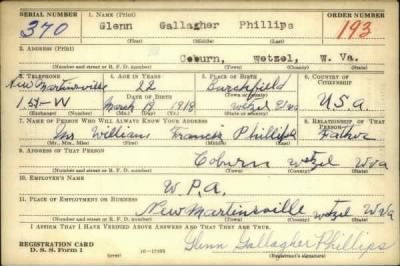 SERIAL NUMBER 1. NAME (Print) ORDER NUMBER
370 Glenn Gallagher Phillips 193
(First) (Middle) (Last)
2. ADDRESS (Print)
Coburn, Wetzel, W. Va.
(Number and street or R. F. D. number) (Town) (County) (State)
3. TELEPHONE 4. AGE IN YEARS 5. PLACE OF BIRTH 6. COUNTRY OF CITIZENSHIP
New Martinsville 22 Burchfield
DATE OF BIRTH (Town or county)
1.51-W March 19 1918 Wetzel U.S.a.
(Exchange) (Number) (Mo.) (Day) (Yr.) (State or country)
7. NAME OF PERSON WHO WILL ALWAYS KNOW YOUR ADDRESS 8. RELATIONSHIP OF THAT PERSON
William Francis Phillips Father
(Mr., Mrs., Miss) (First) (Middle) (Last)
9. ADDRESS OF THAT PERSON
Coburn Wetzel W Va
(Number and street or R. F. D. number) (Town) (County) (State)
10. EMPLOYER'S NAME
W. P. A.
11. PLACE OF EMPLOYMENT OR BUSINESS
New Martinsville Wetzel W Va
(Number and street or R. F. D. number) (Town) (County) (State)
I AFFIRM THAT I HAVE VERIFIED ABOVE ANSWERS AND THAT THEY ARE TRUE.
REGISTRATION CARD
D. S. S. Form 1 Glenn Gallagher Phillips
(Registrant's signature)